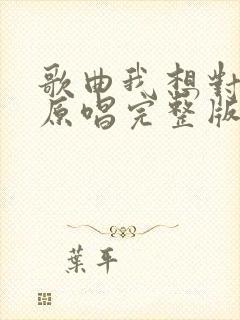 歌曲我想對
原唱完整版
葉平